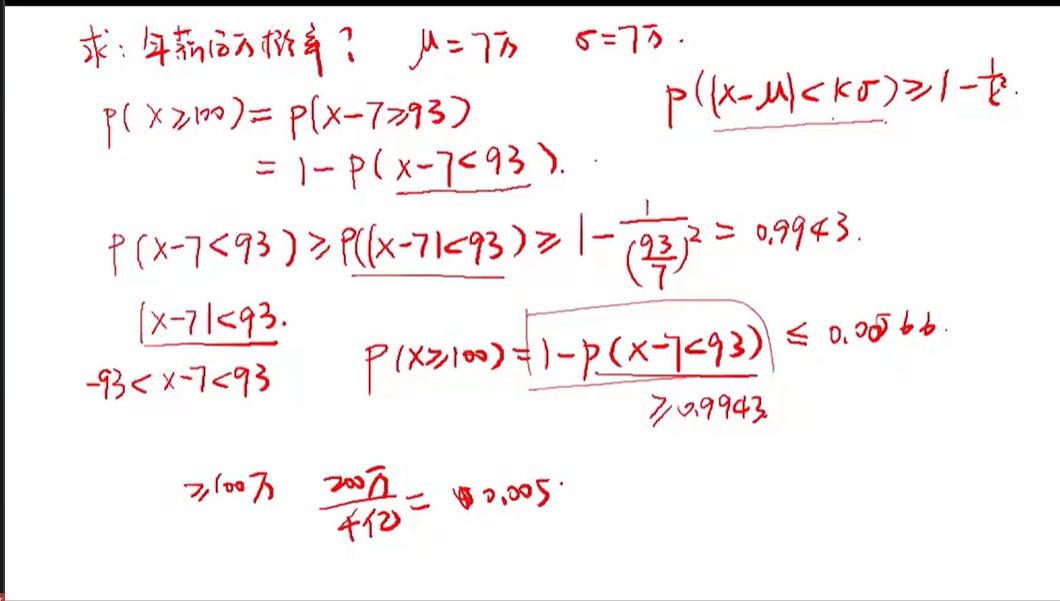 求：年薪百万概率？ μ=7万 σ=7万.
P(|x-μ|<kσ)≥1-1/k².
P(x≥100)=P(x-7≥93)
=1-P(x-7<93).
P(x-7<93)≥P(|x-7|<93)≥1-1/(93/7)²=0.9943.
|x-7|<93.
-93<x-7<93
P(x≥100)=1-P(x-7<93)≤0.00566.
≥0.9943
≥100万 200万/4亿=0.005